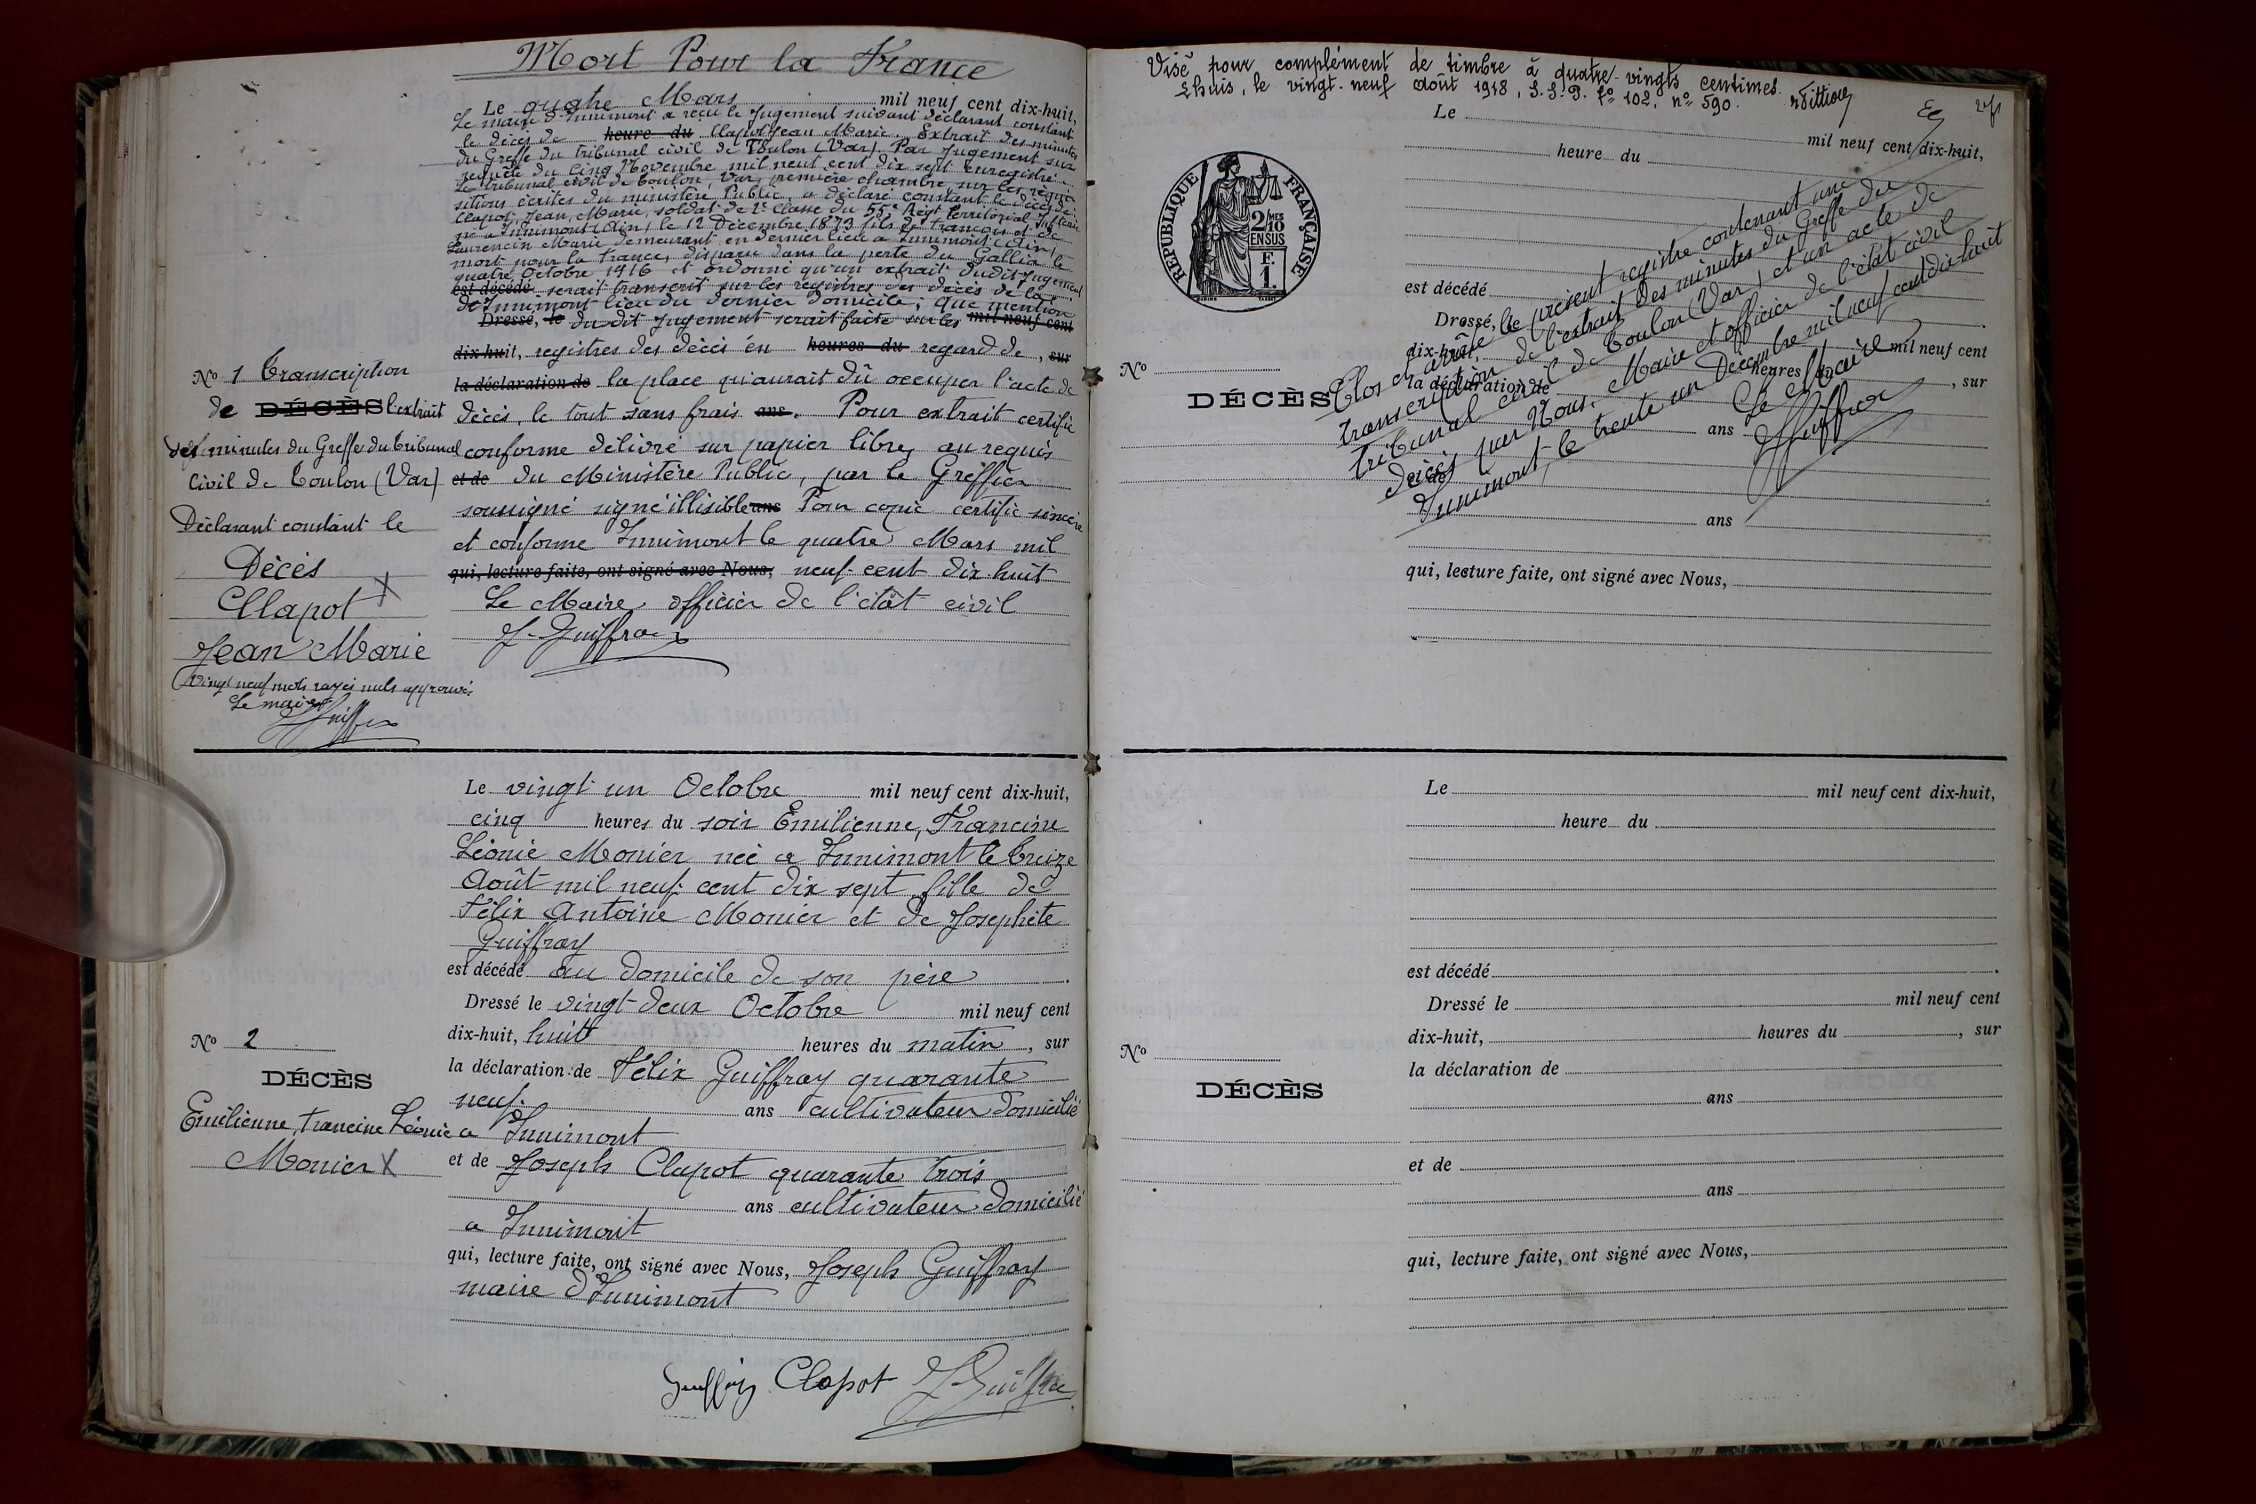 Mort Pour la France
Le quatre Mars mil neuf cent dix-huit,
Le maire d'Innimont a reçu le Jugement suivant déclarant constant
le décès de heure du Clapot Jean Marie. Extrait des minutes
du Greffe du tribunal civil de Toulon (Var). Par Jugement sur
requête du cinq Novembre mil neuf cent dix sept Enregistré.
Le tribunal civil de Toulon, Var, première chambre, sur les réqui-
sitions écrites du ministère Public, a déclaré constant le décès de:
Clapot, Jean, Marie, soldat de 2e classe du 55e Régt territorial Inf.
né à Innimont (Ain) le 12 Décembre 1873 fils de François et de
Laurencin Marie demeurant en dernier lieu à Innimont (Ain)
mort pour la France, disparu dans la perte du Gallia le
quatre Octobre 1916 et ordonné qu'un extrait dudit jugement
est décédé serait transcrit sur les registres des décès de la
de Innimont lieu du dernier domicile; que mention
Dressé, le du dit jugement serait faite sur les mil neuf cent
dix-huit, registres des décès en heures du regard de , sur
la déclaration de la place qu'aurait dû occuper l'acte de
décès, le tout sans frais ans. Pour extrait certifié
conforme délivré sur papier libre, au requis
et de du Ministère Public, par le Greffier
soussigné signé illisible ans Pour copie certifié sincère
et conforme Innimont le quatre Mars mil
qui, lecture faite, ont signé avec Nous, neuf cent dix-huit
Le Maire officier de l'état civil
J. Guiffray
No 1 Transcription
de DÉCÈS l'extrait
des minutes du Greffe du tribunal
Civil de Toulon (Var)
Déclarant constant le
Décès
Clapot X
Jean Marie
Vingt neuf mots rayés nuls approuvés
Le maire
J Guiffray
Le vingt un Octobre mil neuf cent dix-huit,
cinq heures du soir Emilienne, Francine
Léonie Monier née a Innimont le treize
Août mil neuf cent dix sept fille de
Félix Antoine Monier et de Josephte
Guiffray
est décédé au domicile de son père .
Dressé le vingt-deux Octobre mil neuf cent
dix-huit, huit heures du matin , sur
la déclaration de Félix Guiffray quarante
neuf ans cultivateur domicilié
a Innimont
et de Joseph Clapot quarante trois
ans cultivateur domicilié
a Innimont
qui, lecture faite, ont signé avec Nous, Joseph Guiffray
maire d'Innimont
Guiffray Clapot J. Guiffray
No 2
DÉCÈS
Emilienne, Francine Léonie
Monier X
Visé pour complément de timbre à quatre-vingts centimes.
Lhuis, le vingt-neuf août 1918, S.S.P. fo 102, no 590.
RÉPUBLIQUE FRANÇAISE
2/10MES
EN SUS
F.
1.
Le
mil neuf cent dix-huit,
heure du
est décédé
Dressé, le
mil neuf cent
dix-huit, heures du , sur
la déclaration de
ans
et de
ans
qui, lecture faite, ont signé avec Nous,
No
DÉCÈS
Clos et arrêté le présent registre contenant une
transcription de l'extrait des minutes du Greffe du
tribunal civil de Toulon (Var) et un acte de
décès par Nous, Maire et officier de l'état civil
Innimont, le trente un Décembre mil neuf cent dix-huit
Le Maire
J Guiffray
Le mil neuf cent dix-huit,
heure du
est décédé .
Dressé le mil neuf cent
dix-huit, heures du , sur
la déclaration de
ans
et de
ans
qui, lecture faite, ont signé avec Nous,
No
DÉCÈS